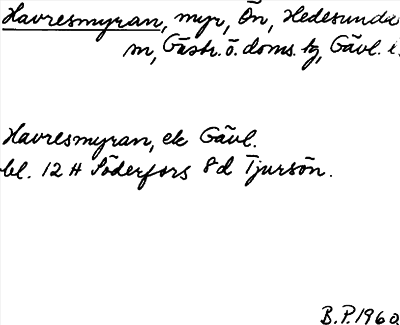 Havresmyran, myr, Ön, Hedesunda
sn, Gästr. ö. doms. tg, Gävl. l.
Havresmyran, ek Gävl.
bl. 12 H Söderfors 8 d Tjursön.
B.P. 1960